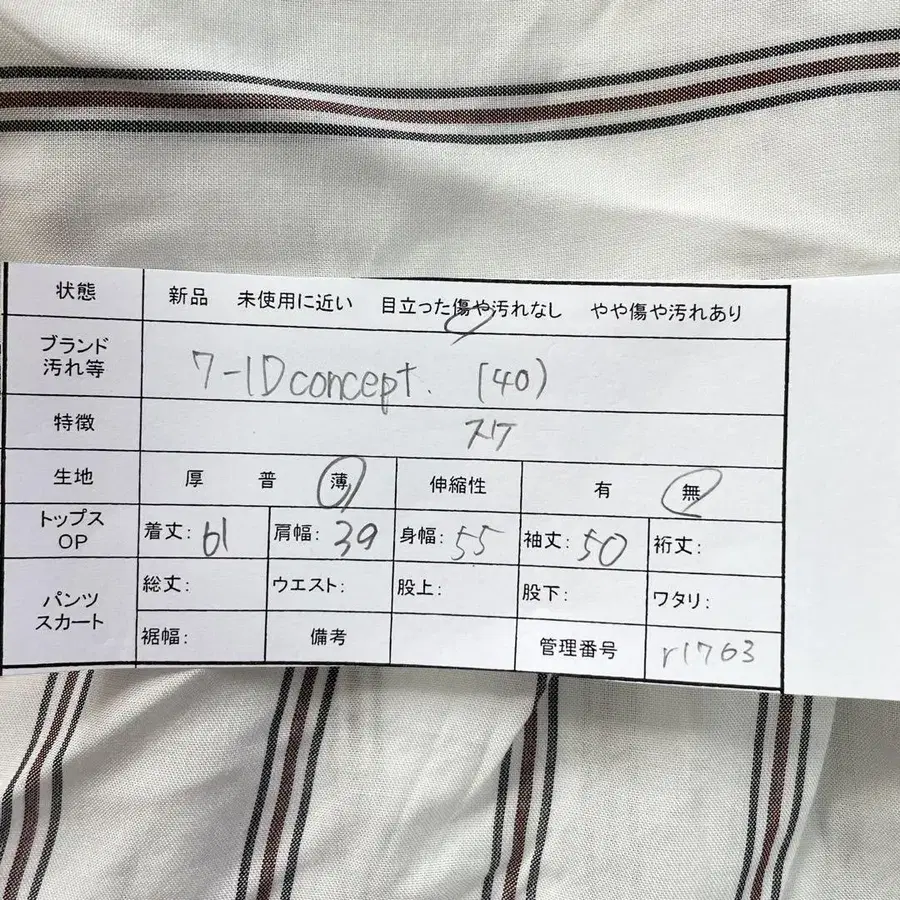 状態 新品 未使用に近い 目立った傷や汚れなし やや傷や汚れあり
ブランド
汚れ等 7-IDconcept. (40)
特徴
生地 厚 普 薄 伸縮性 有 無
トップス
OP 着丈: 61 肩幅: 39 身幅: 55 袖丈: 50 裄丈:
パンツ
スカート 総丈: ウエスト: 股上: 股下: ワタリ:
裾幅: 備考 管理番号 r1763